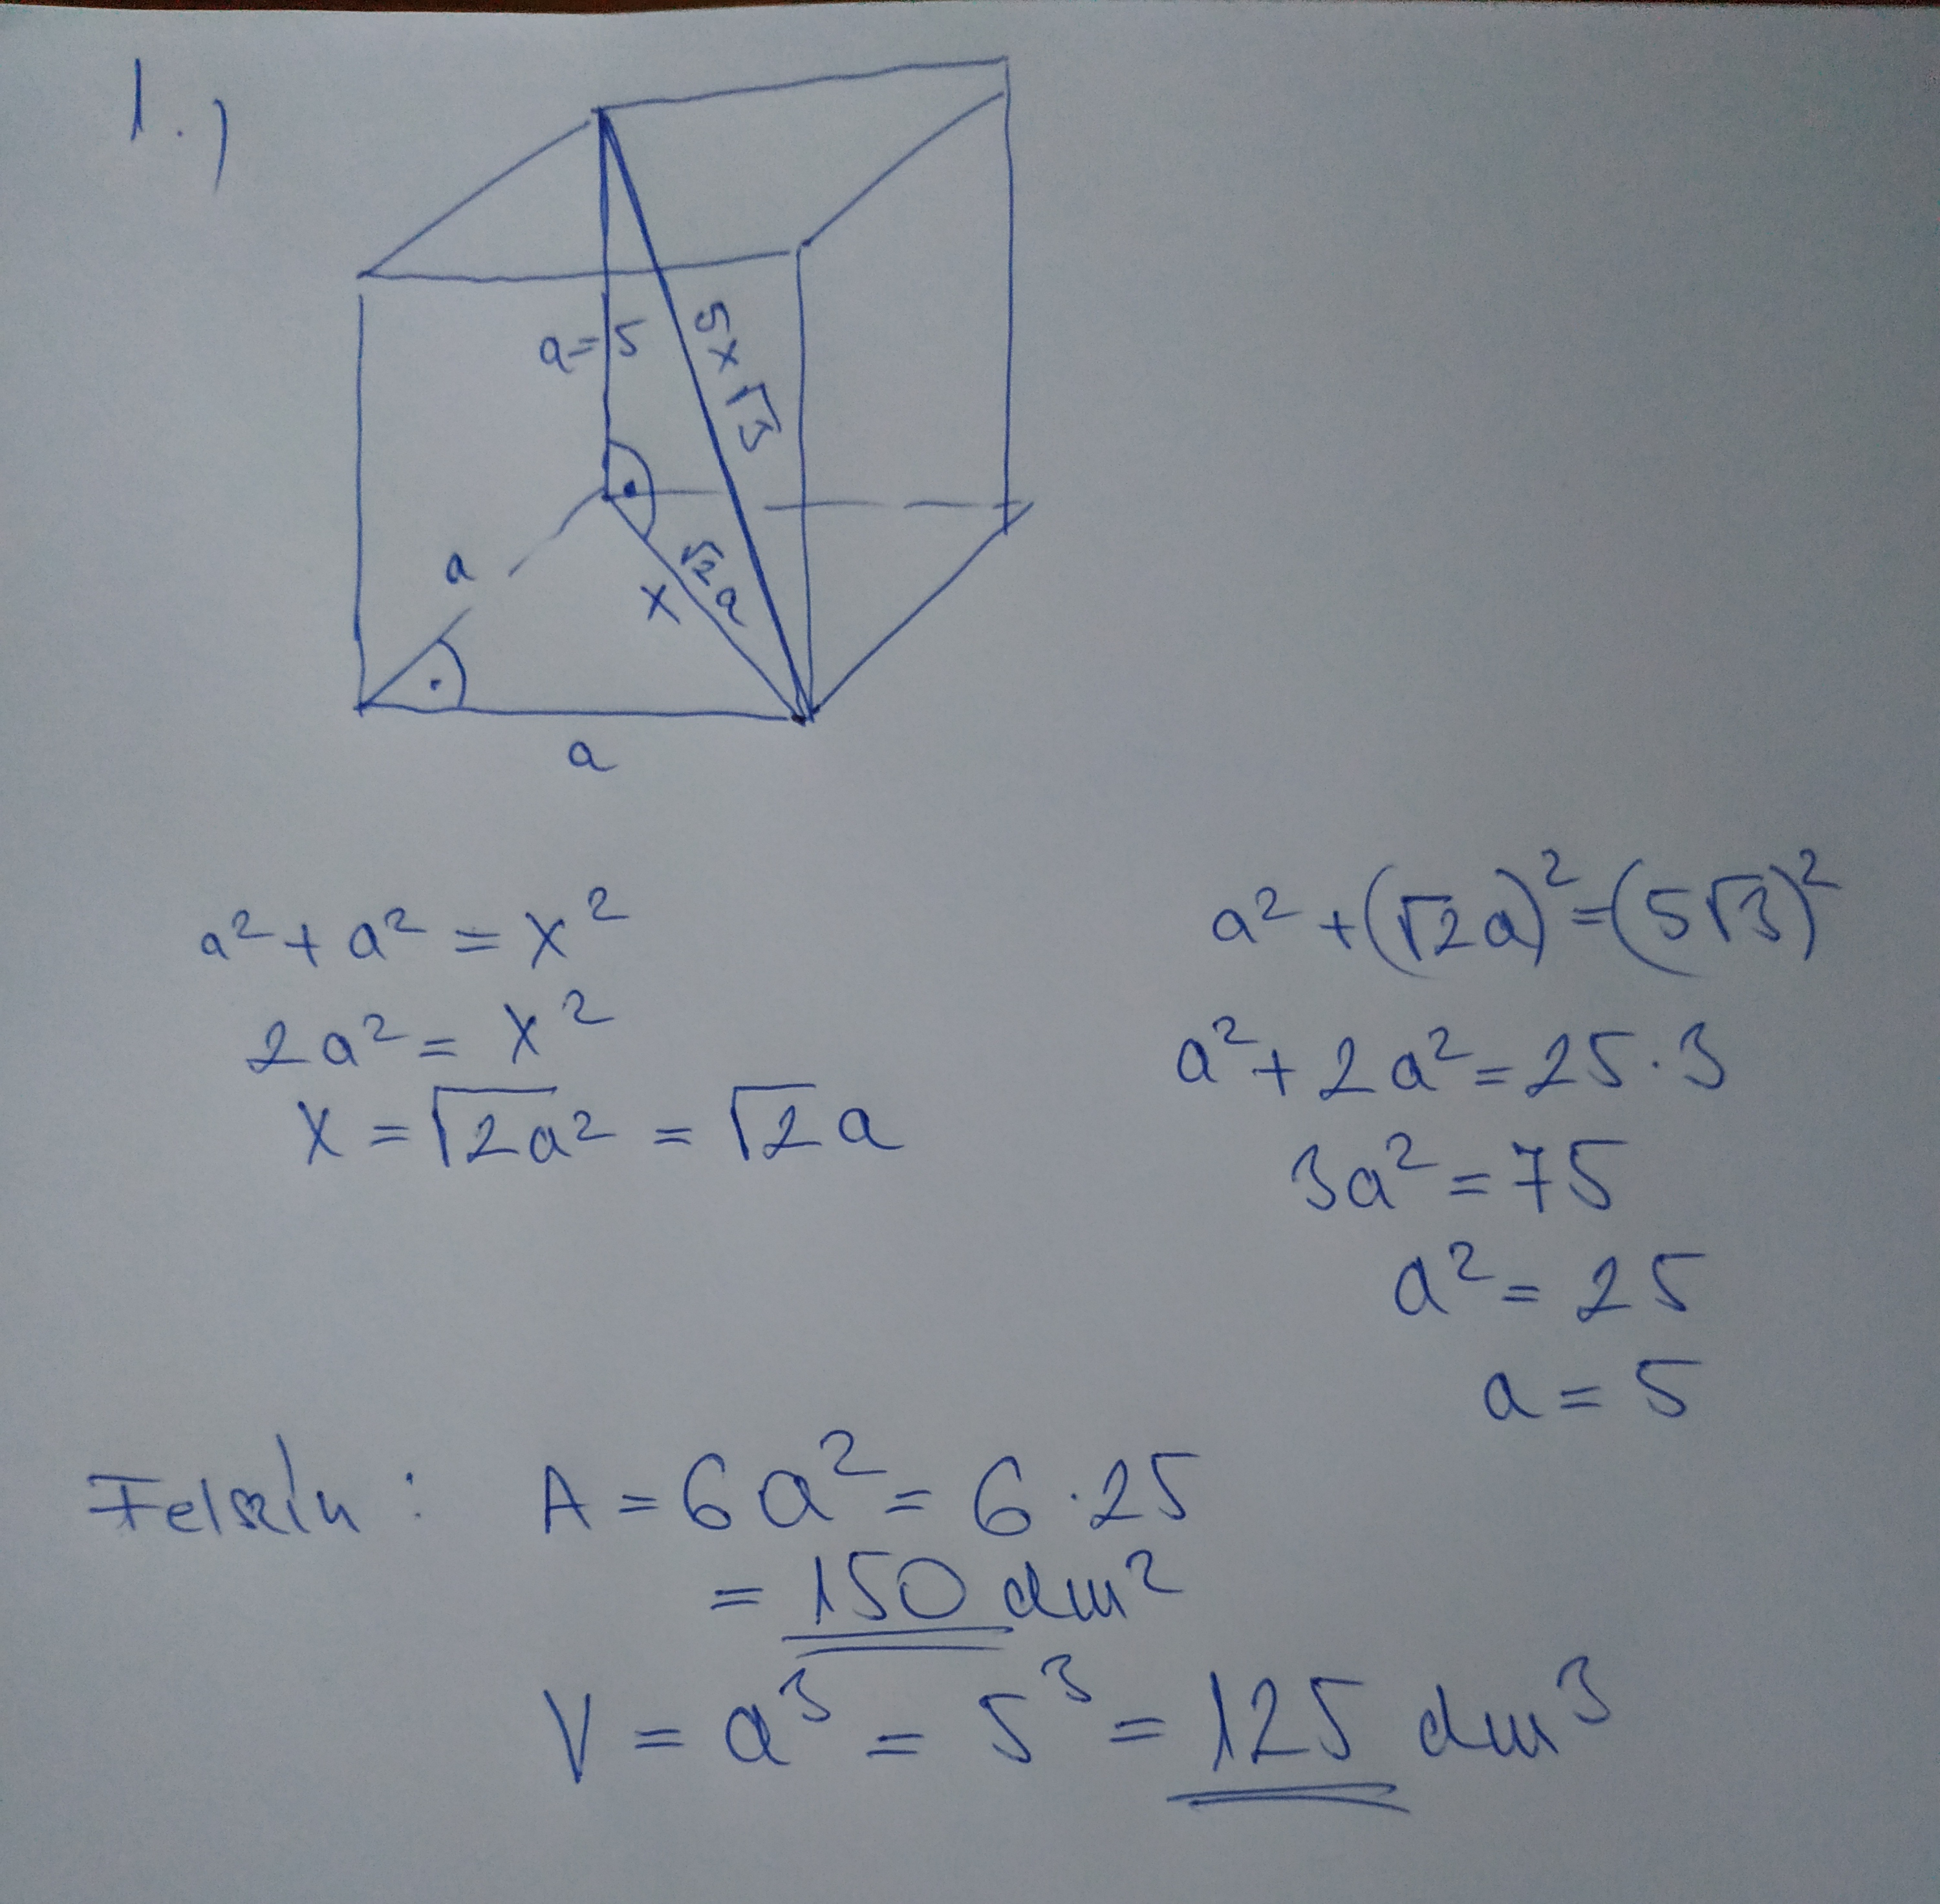 1.)
a=5
5×√3
a
√2a
x
a
a² + a² = x²
2a² = x²
x = √2a² = √2a
a² + (√2a)² = (5√3)²
a² + 2a² = 25·3
3a² = 75
a² = 25
a = 5
Felszín: A = 6a² = 6·25
= 150 dm²
V = a³ = 5³ = 125 dm³